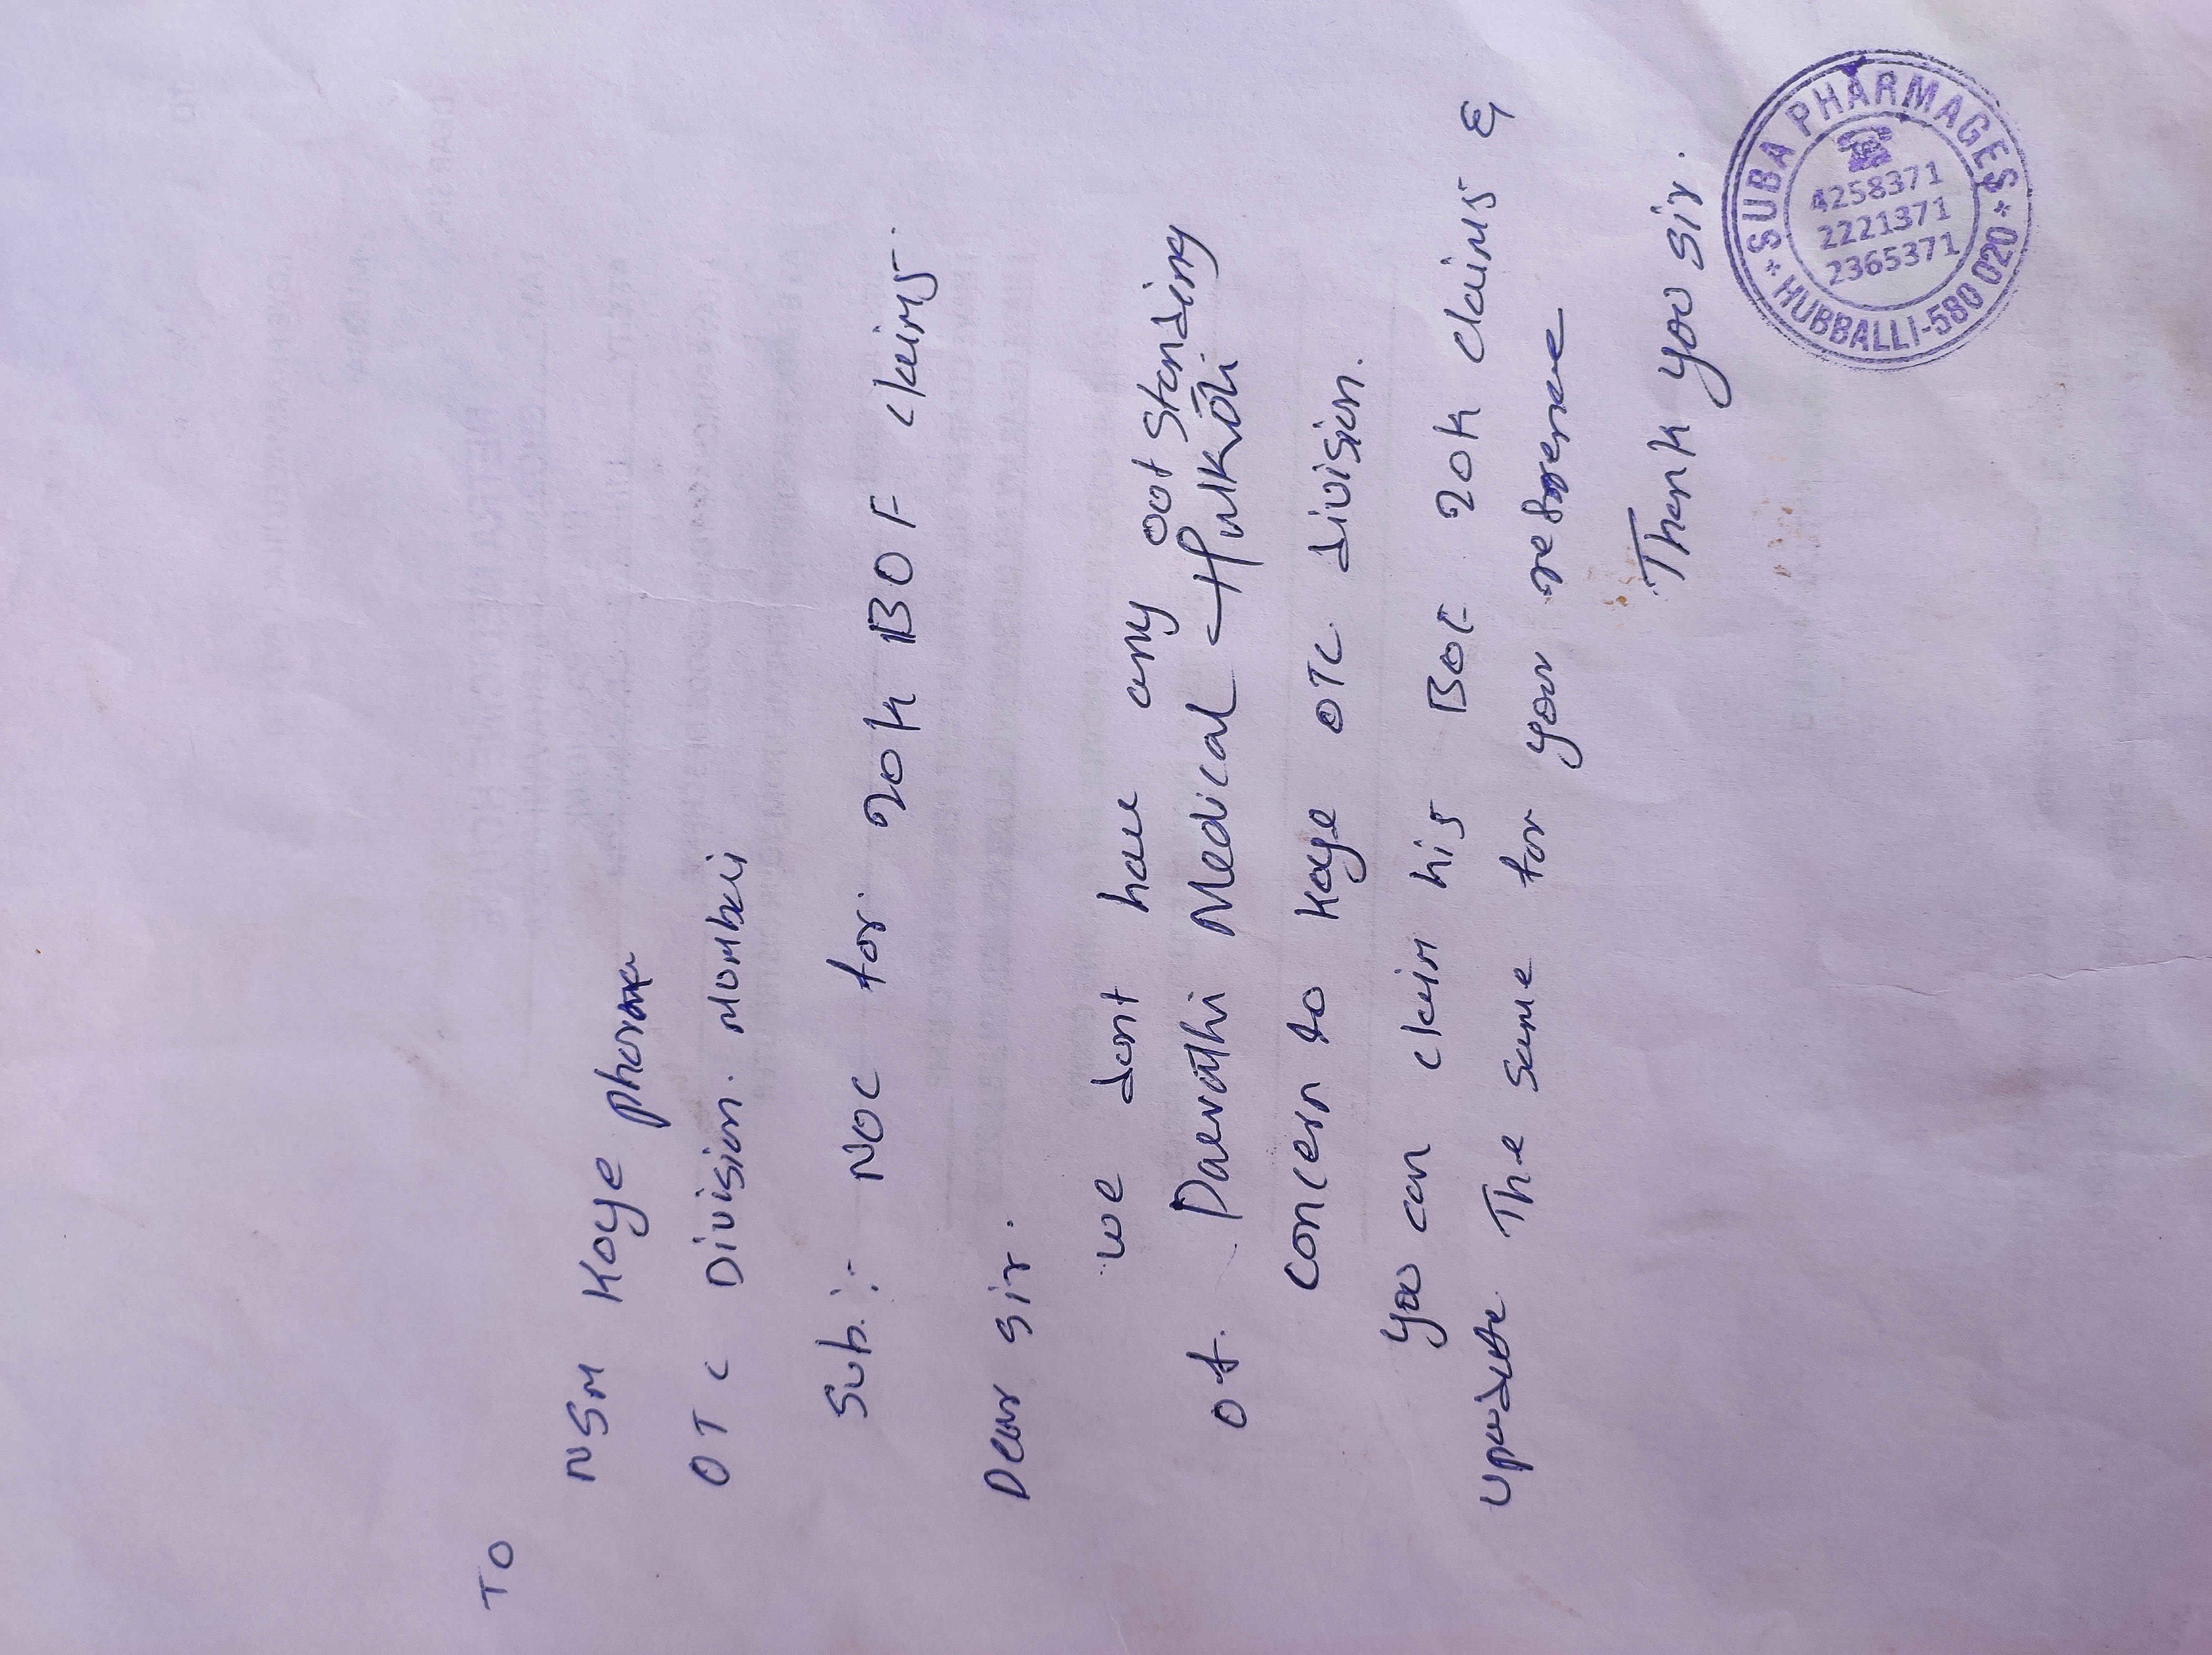 TO
NSM Kaye pharma
OTC Division. Mumbai
Sub:- NOC for 20k BOF claims.
Dear sir.
we dont have any out standing
of. Parvathi Medical Hulkoti
concern to Kaye OTC division.
you can claim his BOF 20k claims &
update The same for your reference
Thank you sir.
* SUBA PHARMAGES *
4258371
2221371
2365371
HUBBALLI-580 020